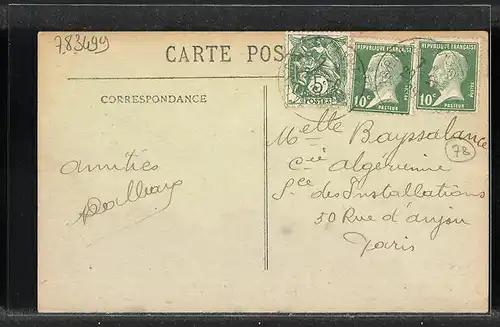 783499
CARTE POS
5c
POSTES
REPUBLIQUE FRANÇAISE
10c
PASTEUR
REPUBLIQUE FRANÇAISE
10c
PASTEUR
CORRESPONDANCE
Melle Bayssalance
78
Cie algérienne
Sce des Installations
50 Rue d'anjou
Paris
amitiés